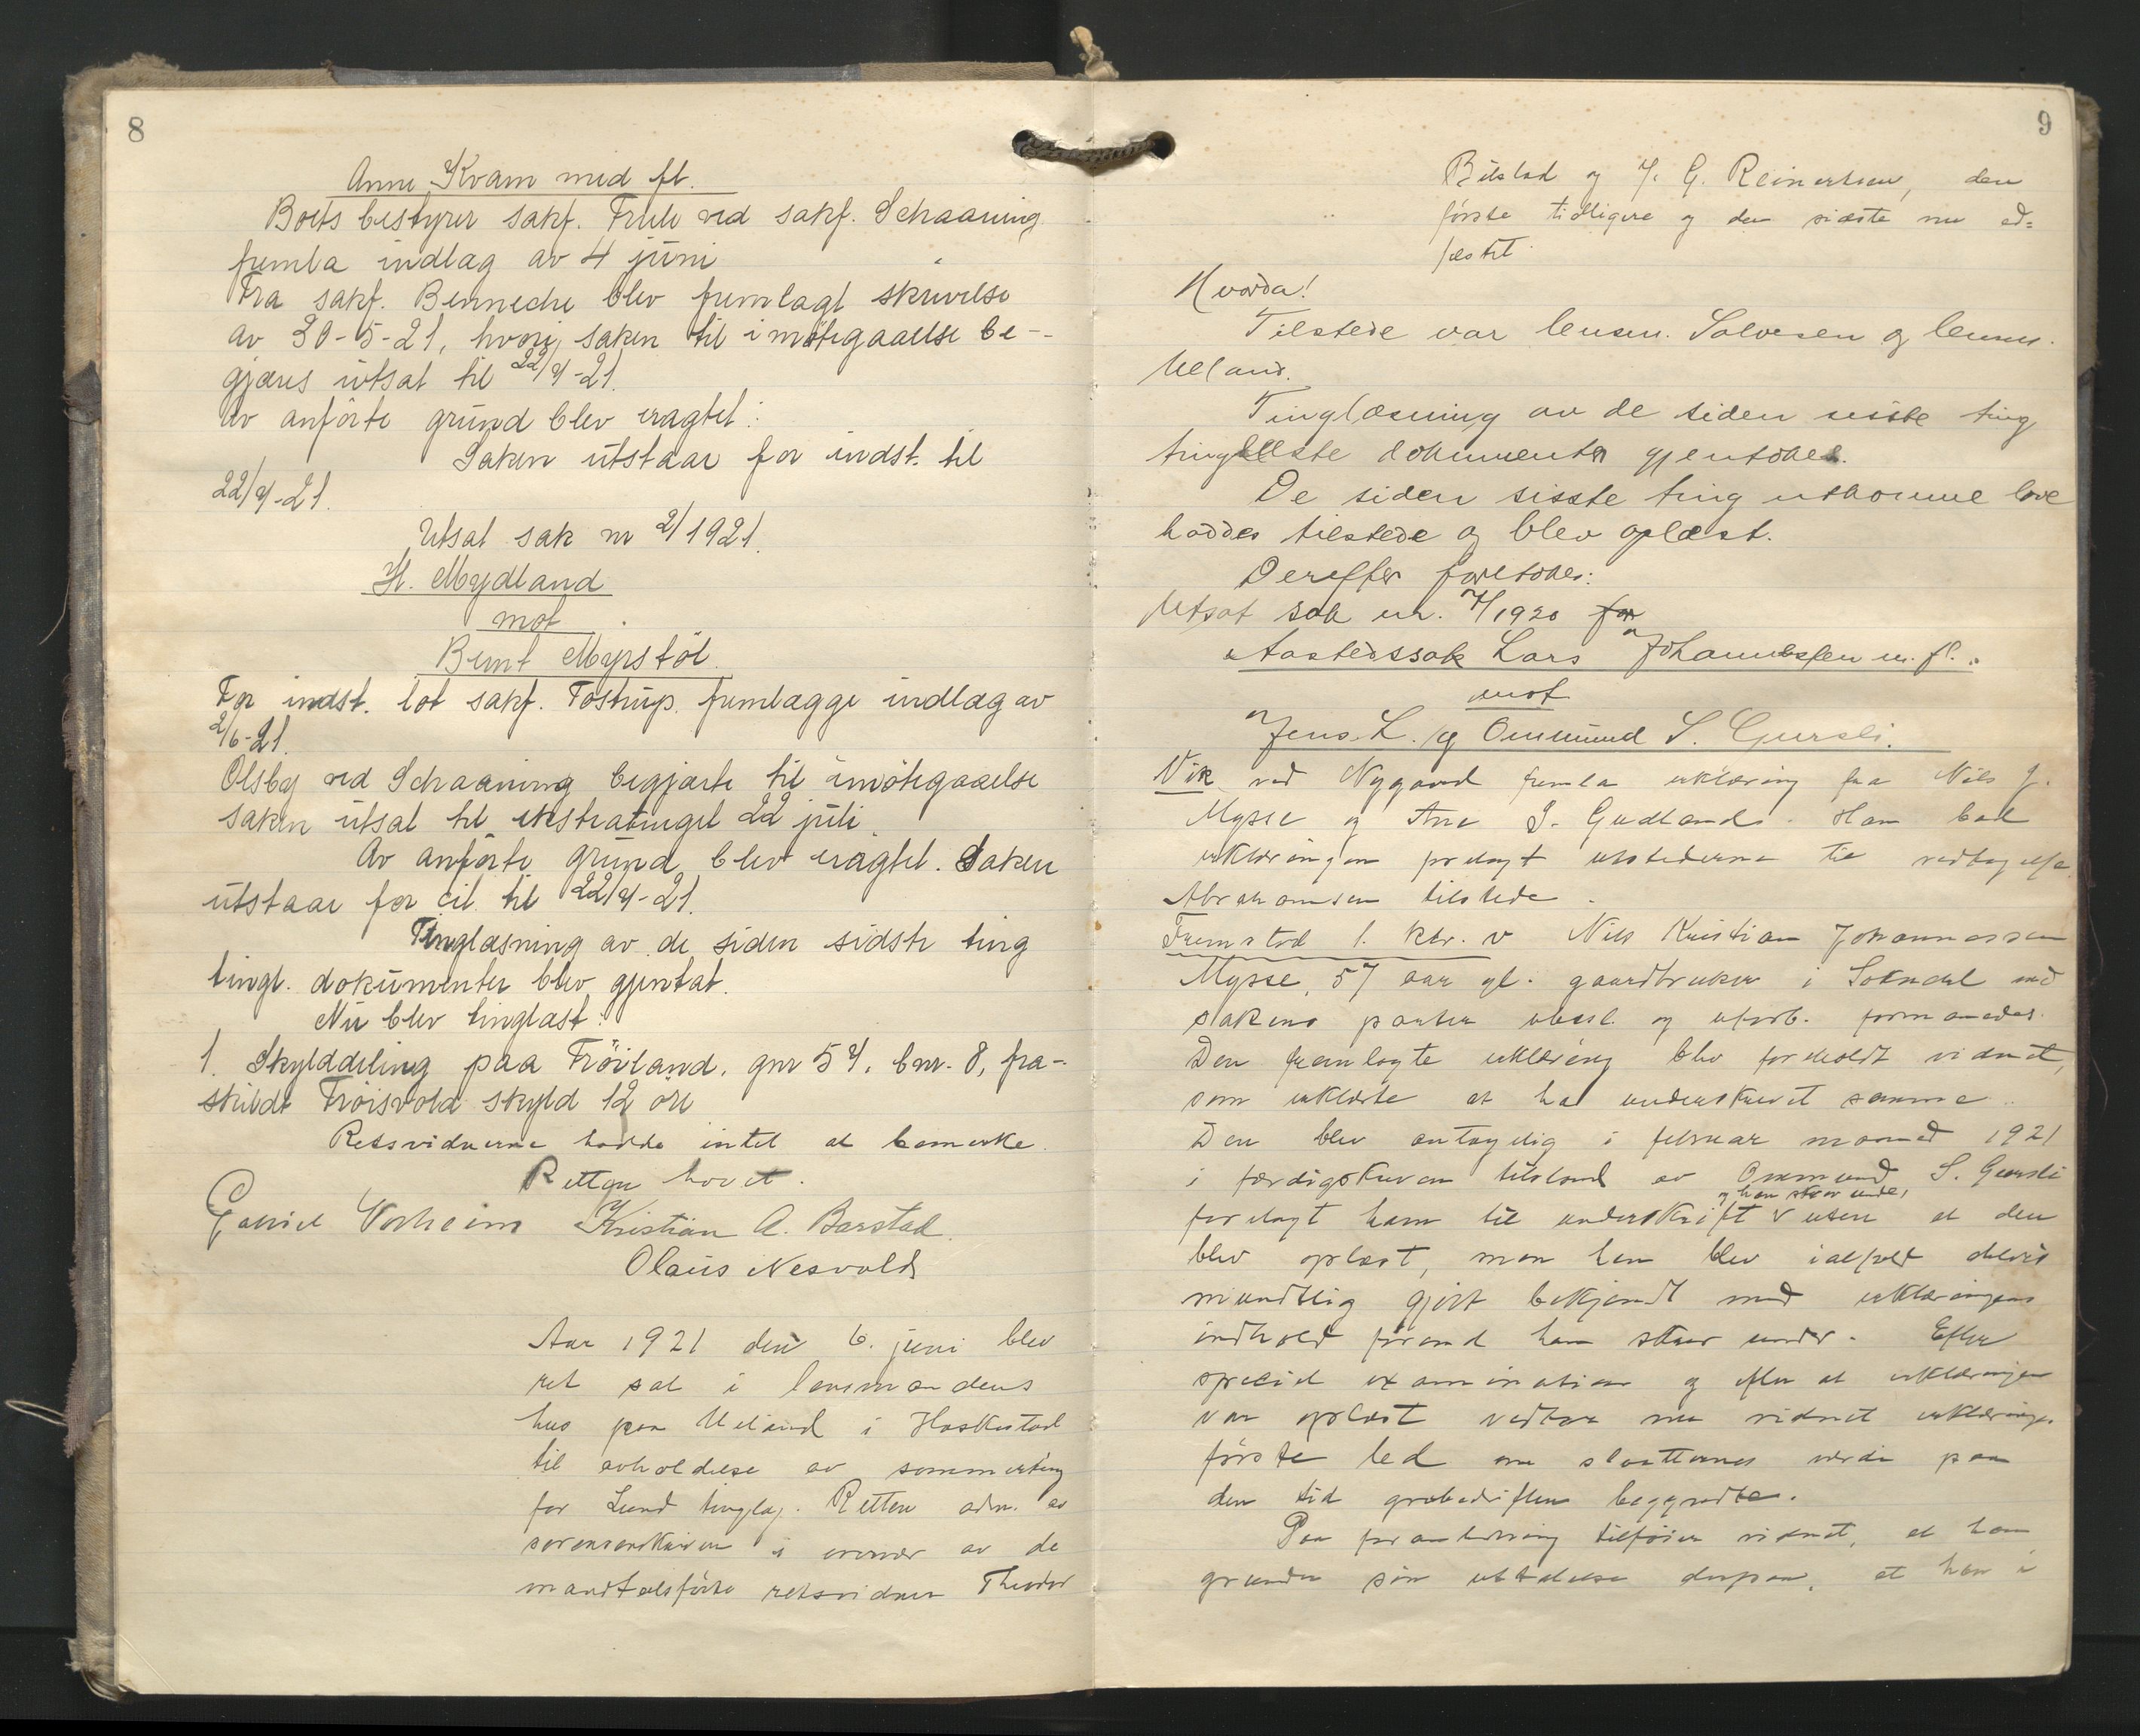 8
Anne Kvam med fl.
Boets bestyrer sakf. Friele ved sakf. Schaaning
fremla indlag av 4 juni
Fra sakf. Benneche blev fremlagt skrivelse
av 30-5-21, hvori saken til imøtegaaelse be-
gjæres utsat til 22/7-21.
Av anførte grund blev eragtet:
Saken utstaar for indst. til
22/7-21.
Utsat sak nr 2/1921.
H. Mydland
mot
Bernt Myrstøl.
For indst. lot sakf. Tostrup fremlægge indlæg av
2/6-21.
Olsby ved Schaaning begjærte til imøtegaaelse
saken utsat til ekstratinget 22 juli.
Av anførte grund blev eragtet. Saken
utstaar for cit. til 22/7-21.
Tinglæsning av de siden sidste ting
tingl. dokumenter blev gjentat.
Nu blev tinglæst:
1. Skylddeling paa Frøiland, gnr 57, bnr. 8, fra-
skildt Frøisvold skyld 12 øre
Retsvidnerne hadde intet at bemerke.
Retten hævet.
Gabriel Vorheim Kristian A. Barstad.
Olaus Nesvold
Aar 1921 den 6. juni blev
ret sat i lensmandens
hus paa Ueland i Heskestad
til avholdelse av sommerting
for Lund tinglag. Retten adm. av
sorenskriveren i overvær av de
mandtalsførte retsvidner Theodor
9
Bilstad og J. G. Reinertsen, den
første tidligere og den sidste nu ed=
fæstet.
Hvorda!
Tilstede var lensm. Salvesen og lensm.
Ueland.
Tinglæsning av de siden sisste ting
tinglæste dokumenter gjentokes.
De siden sisste ting utkomne love
haddes tilstede og blev oplæst.
Derefter foretokes:
Utsat sak nr. 7/1920 for
Aastedssak Lars Johannessen m. fl.
mot
Jens L. og Ommund S. Gursli.
Vik ved Nygaard fremla erklæring fra Nils J.
Mysse og Ane S. Gudlands. Han bad
erklæringen forelagt utstederne til vedtagelse.
Abrahamsen tilstede.
Fremstod 1. ktr. v Nils Kristian Johannessen
Mysse, 57 aar gl. gaardbruker i Sokndal med
sakens parter ubesl. og uforb. formanedes.
Den fremlagte erklæring blev foreholdt vidnet,
som erklærte at ha underskrevet samme.
Den blev antagelig i februar maaned 1921
i færdigskreven tilstand av Ommund S. Gursli
og han skrev under,
forelagt ham til underskrift v uten at den
blev oplæst, men han blev ialfald delvis
mundtlig gjort bekjendt med erklæringens
indhold førend han skrev under. Efter
speciel examination og efter at erklæringen
var oplæst vedtar nu vidnet erklæringens
første led om slaatternes værdi paa
den tid grubedriften begyndte.
Paa foranledning tilføier vidnet, at han
grunder sin uttalelse derpaa, at han i